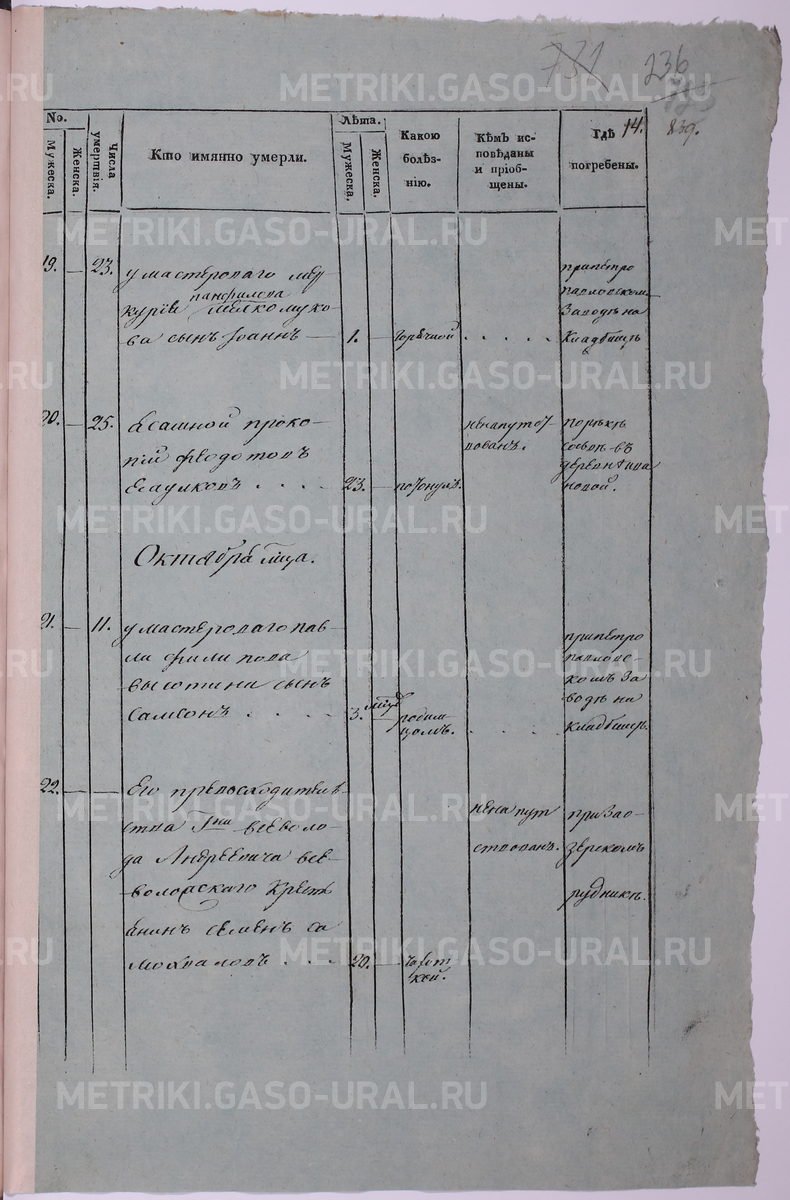 731 236
725
14. 839.
No. Мужеска. Женска.
Числа умертвія.
Кто имянно умерли.
Лѣта. Мужеска. Женска.
Какою
болѣз-
нію.
Кѣмъ ис-
повѣданы
и пріоб-
щены.
Гдѣ
погребены.
19. — 23. умастероваго мер
курія панфилова мелкомуко-
ва сынъ Іоаннъ — 1. — горячкой . . . . .
припетро
павловском
заводѣ на
кладбищѣ
20. — 25. Ясашной проко-
пій федотовъ
Есаулковъ . . . . 23. — потонулъ.
ненапутст
вованъ.
порѣкѣ
сосвѣ въ
деревнѣ ива
новой.
Октября мѣсца.
21. — 11. умастероваго пав-
ла филипова
высотина сынъ
самсонъ . . . . 3. мѣц — родим-
цомъ. . . . .
припетро
павловс-
комъ за
водѣ на
кладбищѣ.
22. — — Его превосходитель
ства Гна всеволо-
да Андреевича все-
воложскаго крест
янинъ семенъ са
мохваловъ . . . 20. — чахот
кой.
ненапут
ствованъ.
при Зао-
зерскомъ
рудникѣ.
METRIKI.GASO-URAL.RU